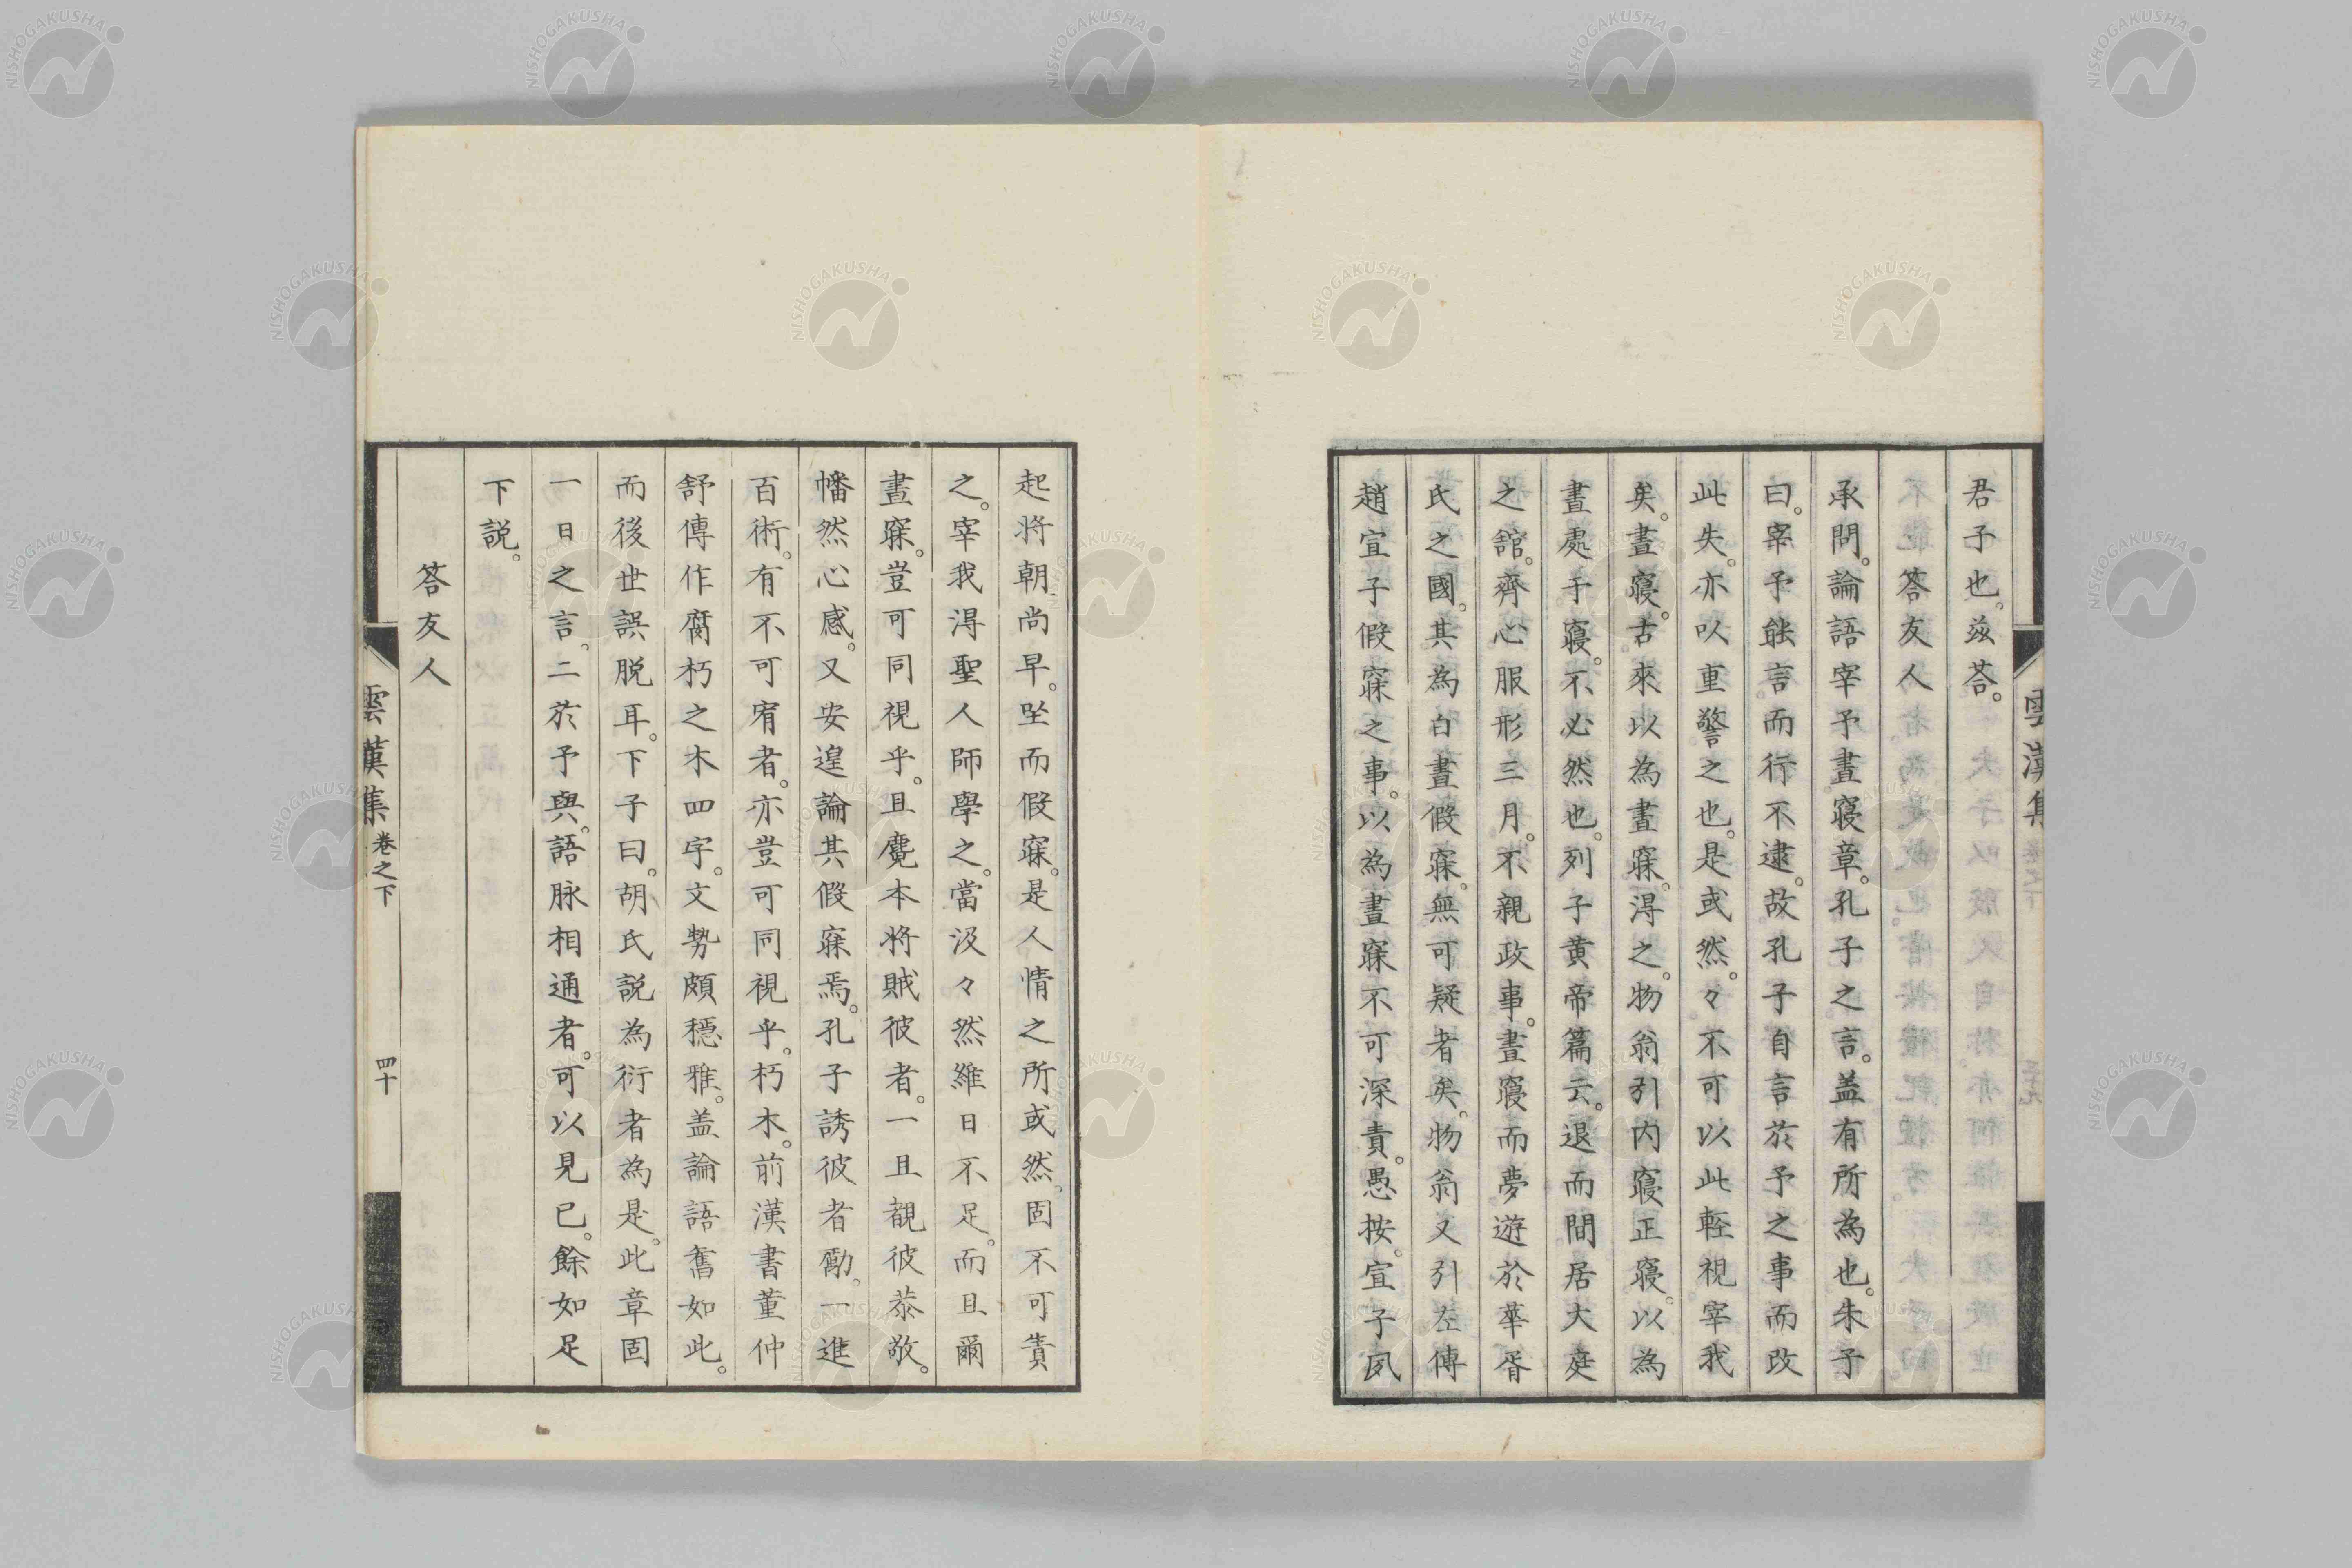 君子也。茲荅。
荅友人
承問。論語宰予晝寢章。孔子之言。盖有所為也。朱子
曰。宰予能言而行不逮。故孔子自言於予之事而改
此失。亦以重警之也。是或然。々不可以此輕視宰我
矣。晝寢。古來以為晝寐。得之。物翁引内寢正寢。以為
晝處于寢。不必然也。列子黄帝篇云。退而間居大庭
之舘。齊心服形三月。不親政事。晝寢而夢遊於華胥
氏之國。其為白晝假寐。無可疑者矣。物翁又引左傳
趙宣子假寐之事。以為晝寐不可深責。愚按。宣子夙
起将朝尚早。坐而假寐。是人情之所或然。固不可責
之。宰我得聖人師學之。當汲々然維日不足。而且爾
晝寐。豈可同視乎。且麑本将賊彼者。一旦覩彼恭敬。
幡然心感。又安遑論其假寐焉。孔子誘彼者勵。一進
百術。有不可宥者。亦豈可同視乎。朽木。前漢書董仲
舒傳作腐朽之木四字。文勢頗穩雅。盖論語舊如此。
而後世誤脱耳。下子曰。胡氏説為衍者為是。此章固
一日之言。二於予與。語脉相通者。可以見已。餘如足
下説。
荅友人
雲漢集 卷之下 四十